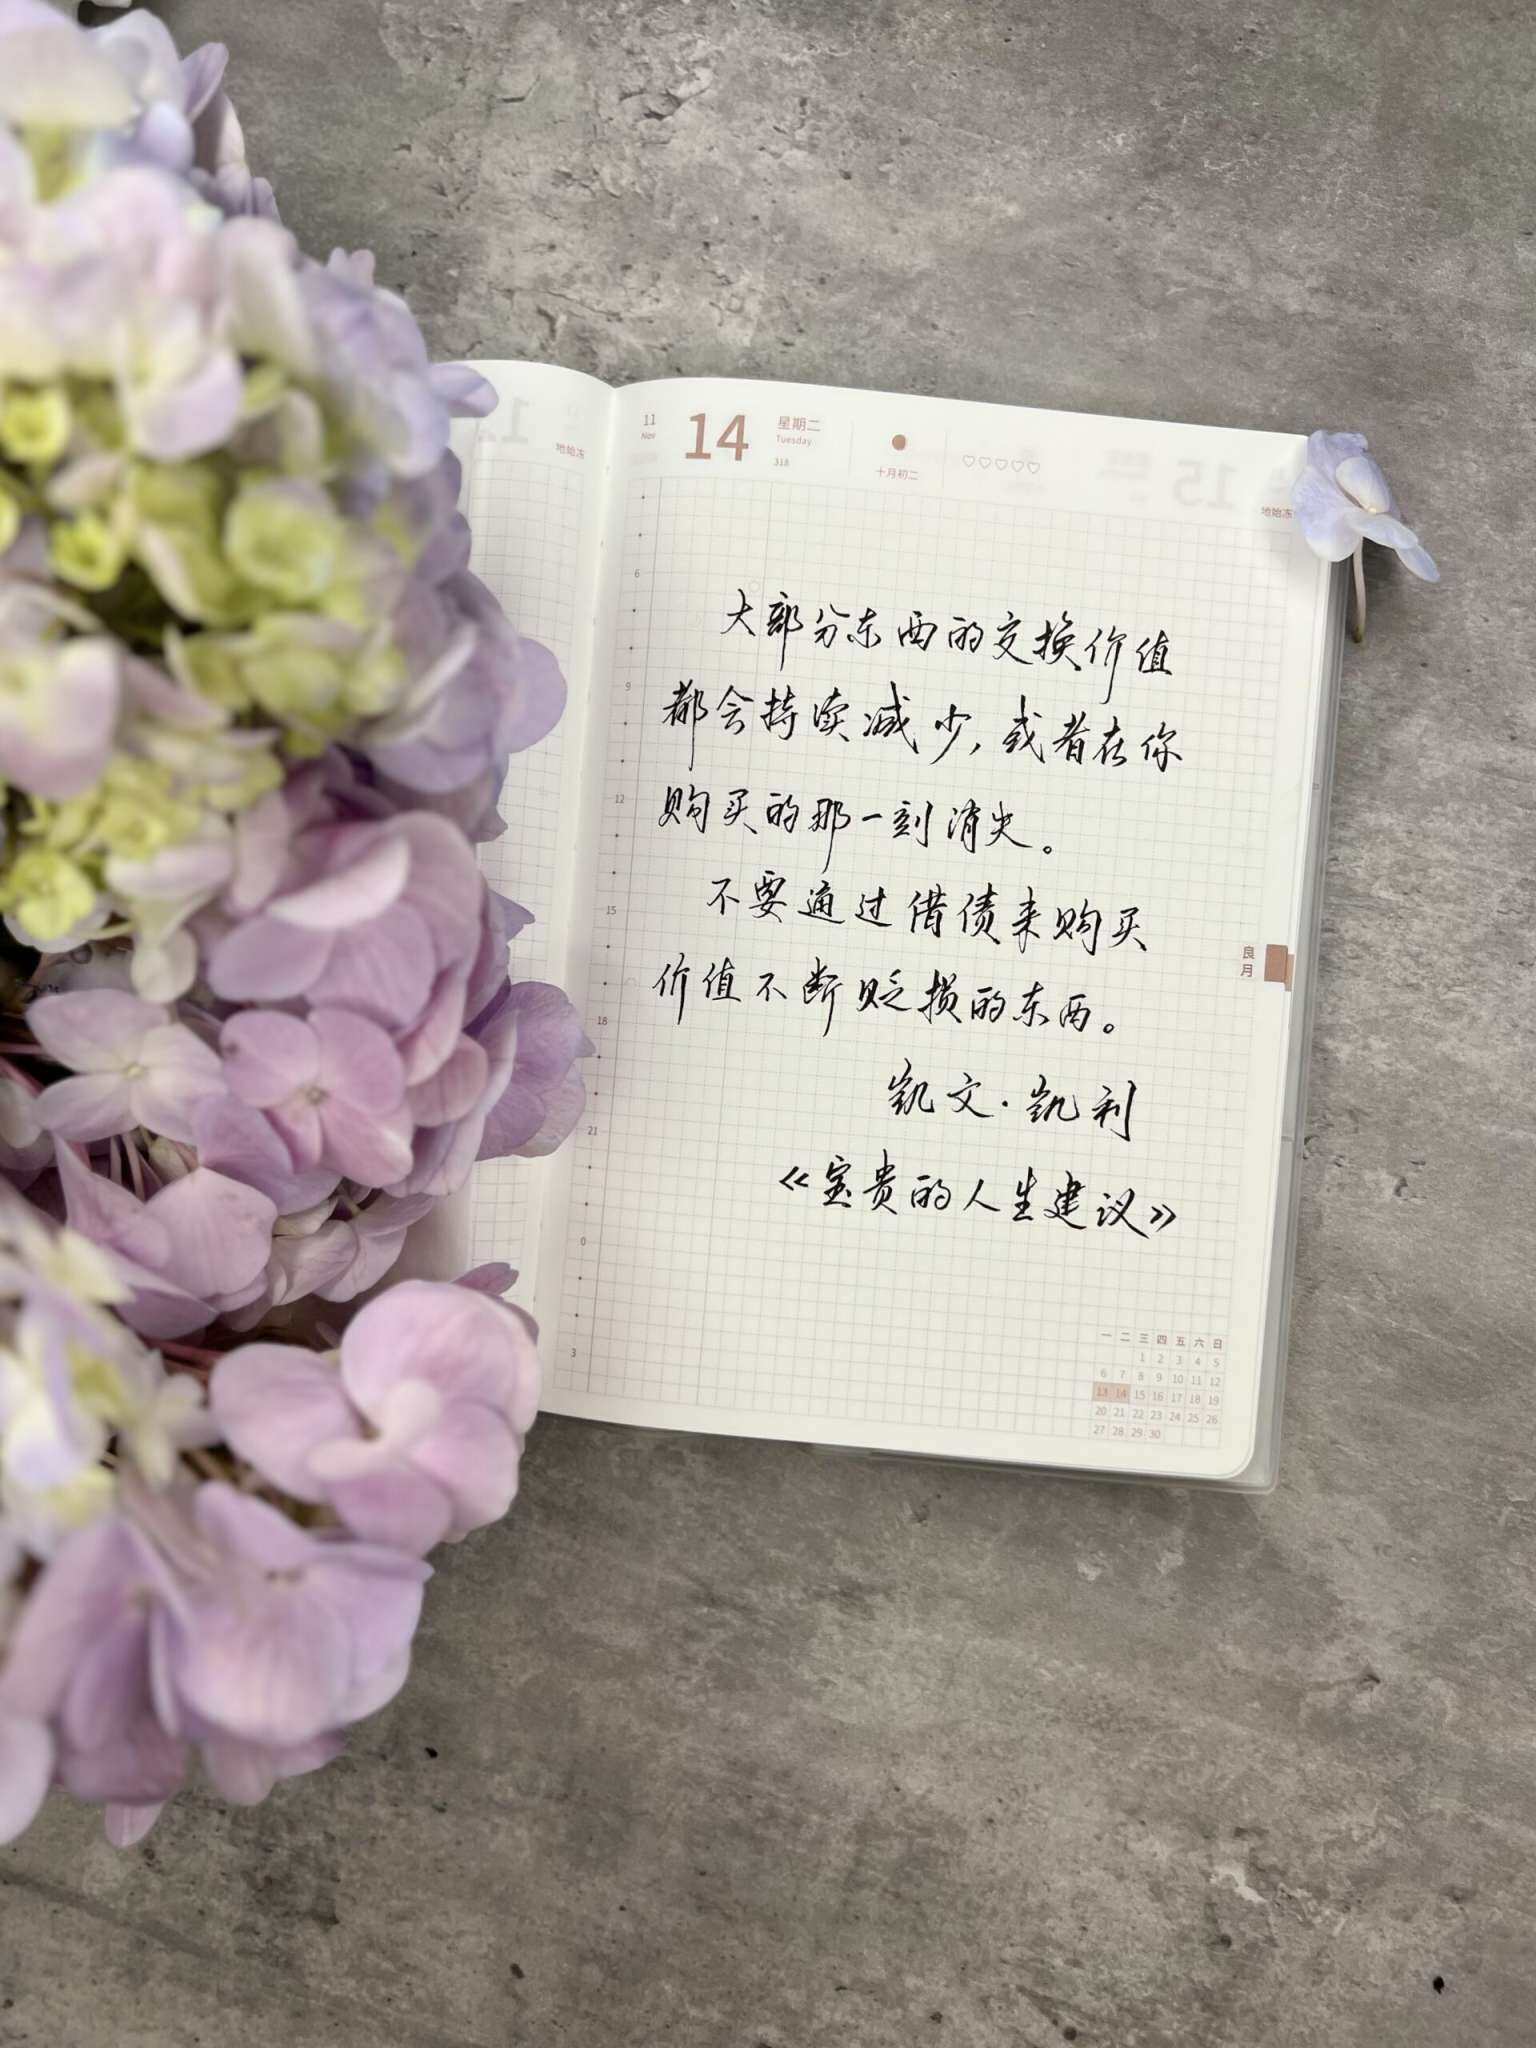 11
Nov
14
星期二
Tuesday
318
十月初二
♡♡♡♡♡
地始冻
地始冻
6
9
12
15
18
21
0
3
大部分东西的交换价值
都会持续减少,或者在你
购买的那一刻消失。
不要通过借债来购买
价值不断贬损的东西。
凯文·凯利
《宝贵的人生建议》
良月
一 二 三 四 五 六 日
1 2 3 4 5
6 7 8 9 10 11 12
13 14 15 16 17 18 19
20 21 22 23 24 25 26
27 28 29 30